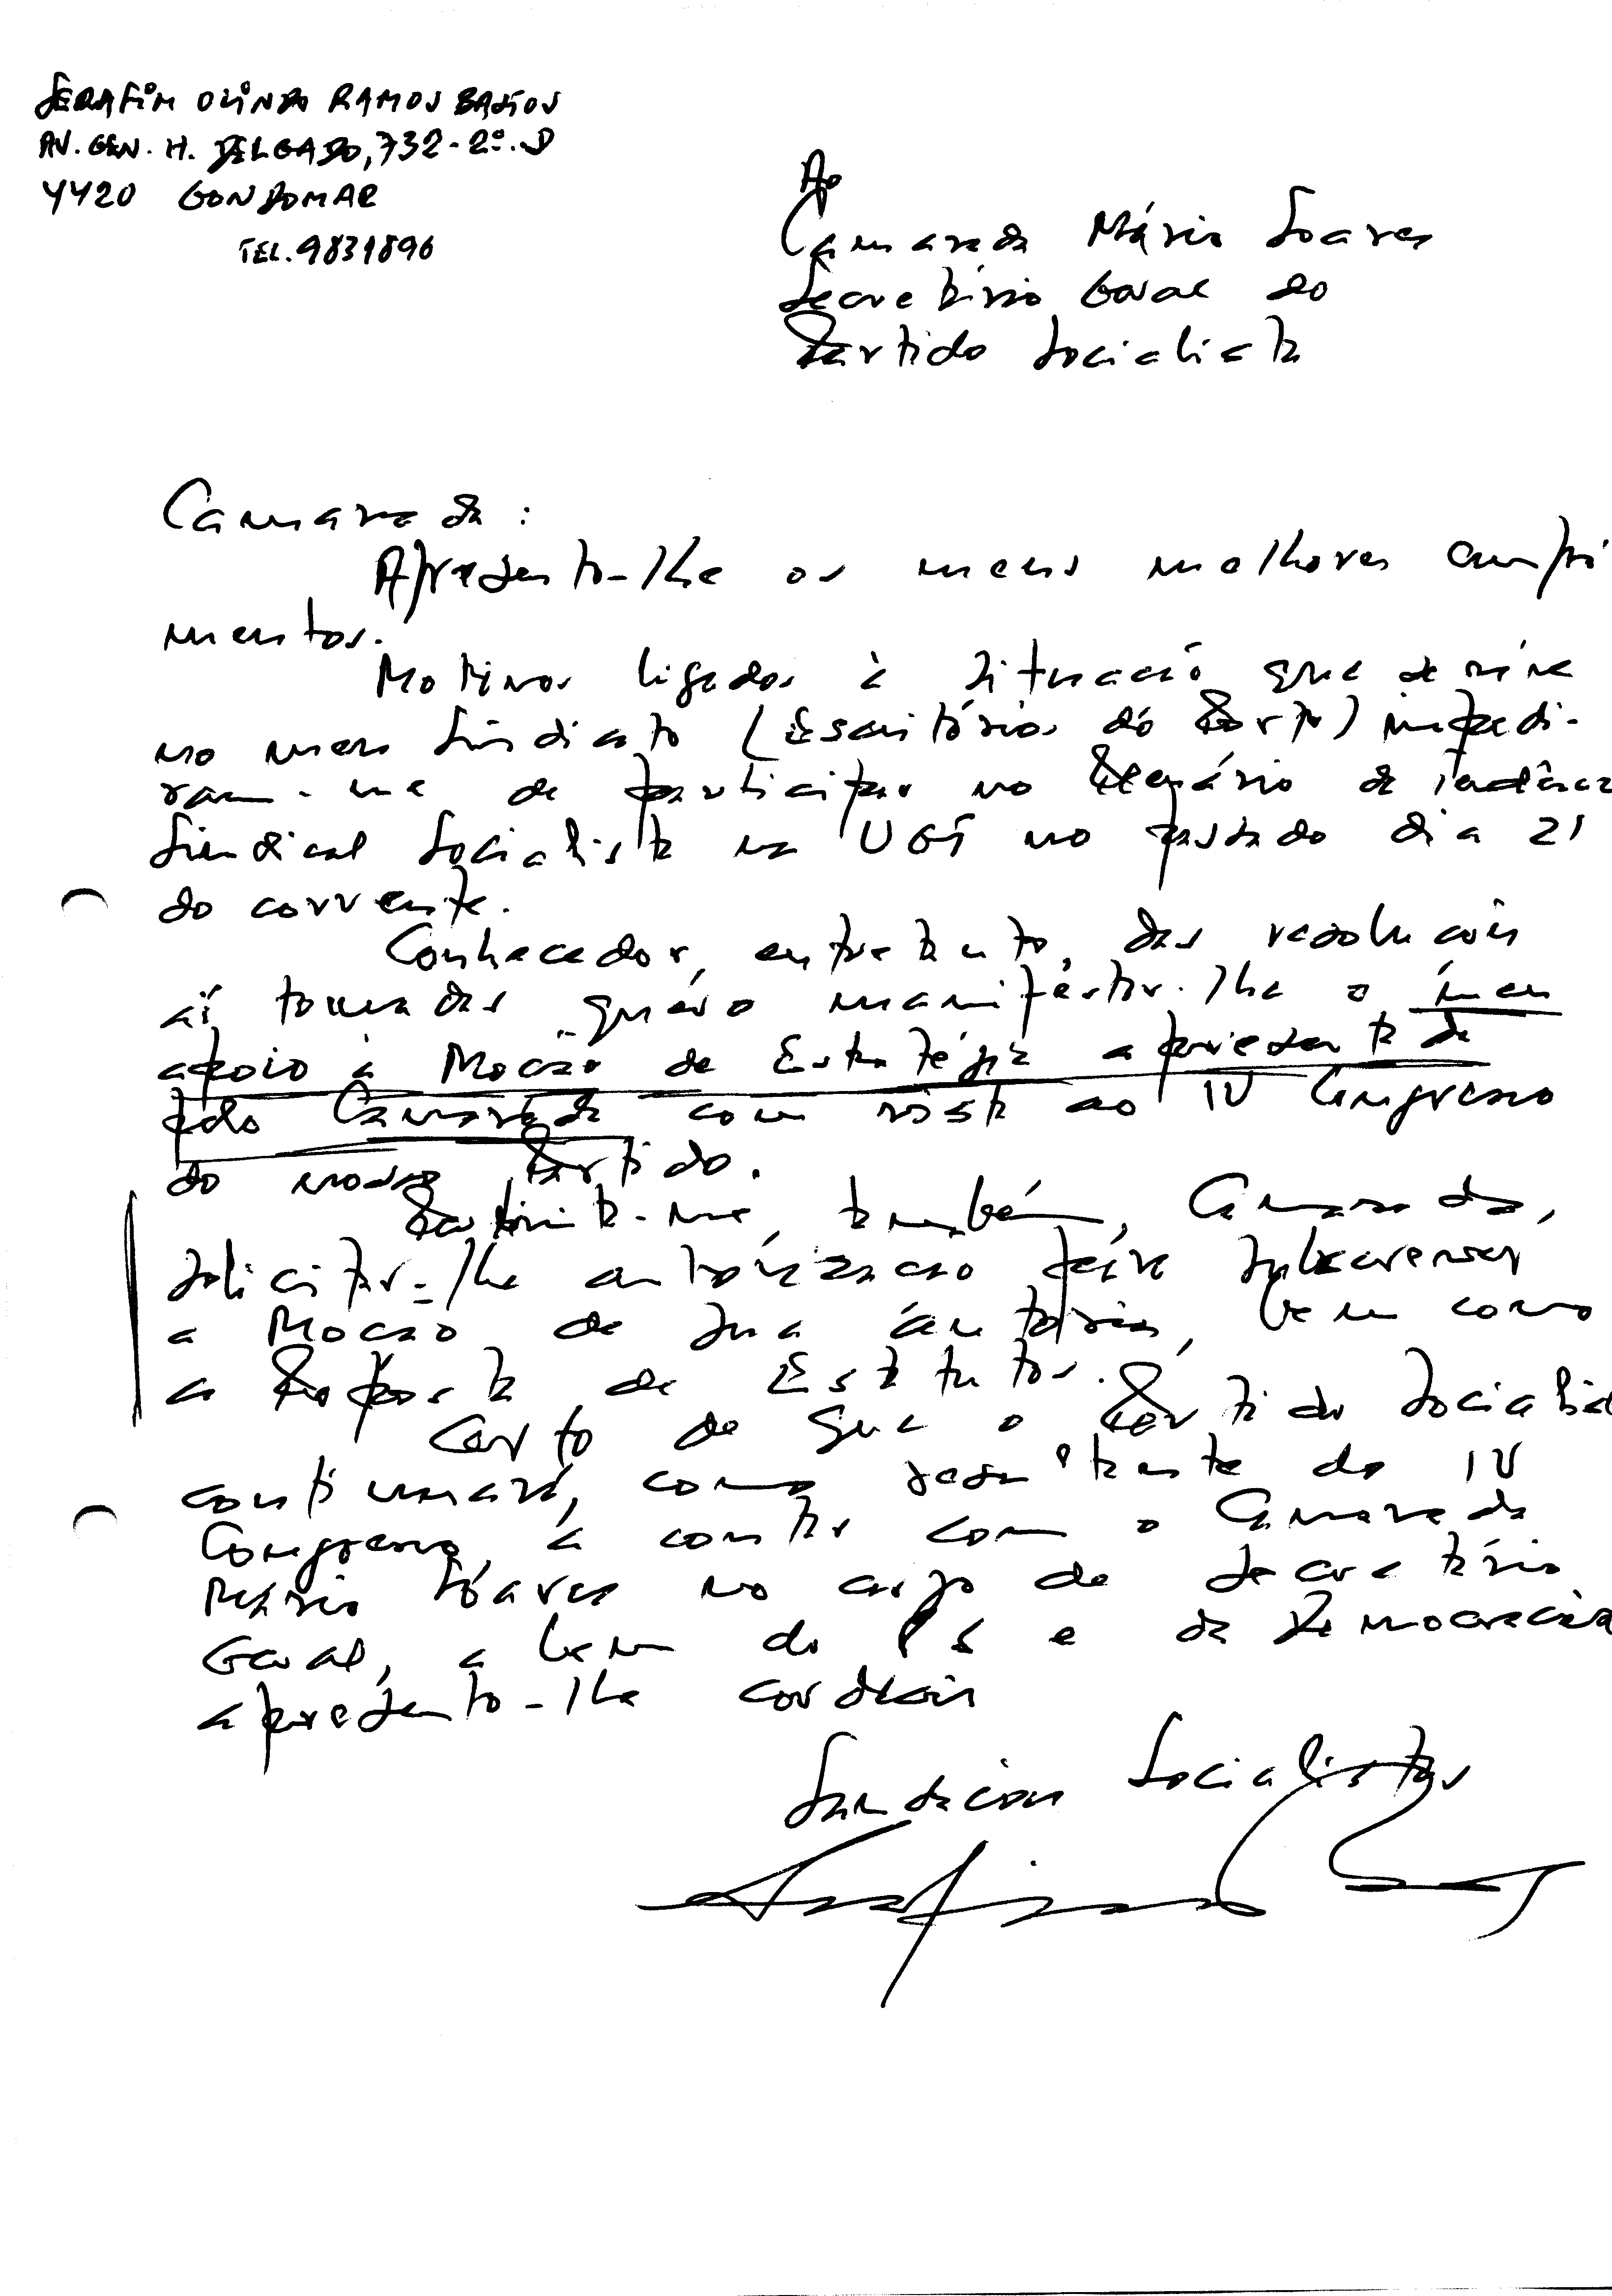 SERAFIM OLINDO RAMOS BASTOS
AV. GEN. H. DELGADO, 732-2º.D
4420 GONDOMAR
TEL. 9831896
Ao
Camarada Mário Soares
Secretário Geral do
Partido Socialista
Camarada :
Apresento-lhe os meus melhores cumpri
mentos.
Motivos ligados à situação que se vive
no meu Sindicato (Escritórios do Porto) impedi-
ram-me de participar no Plenário da Tendência
Sindical Socialista na UGT no passado dia 21
do corrente.
Conhecedor, entretanto, das resoluções
aí tomadas quero manifestar-lhe o meu
apoio à Moção de Estratégia apresentada
pelo Camarada com vista ao IV Congresso
do nosso Partido.
Permita-me, também, Camarada,
solicitar-lhe autorização para subscrever
a Moção de sua autoria, bem como
a Proposta de Estatutos.
Certo de que o Partido Socialista
continuará, como resultante do IV
Congresso, a contar com o Camarada
Mário Soares no cargo de Secretário
Geral, a bem do PS e da Democracia
apresento-lhe cordiais
Saudações Socialistas